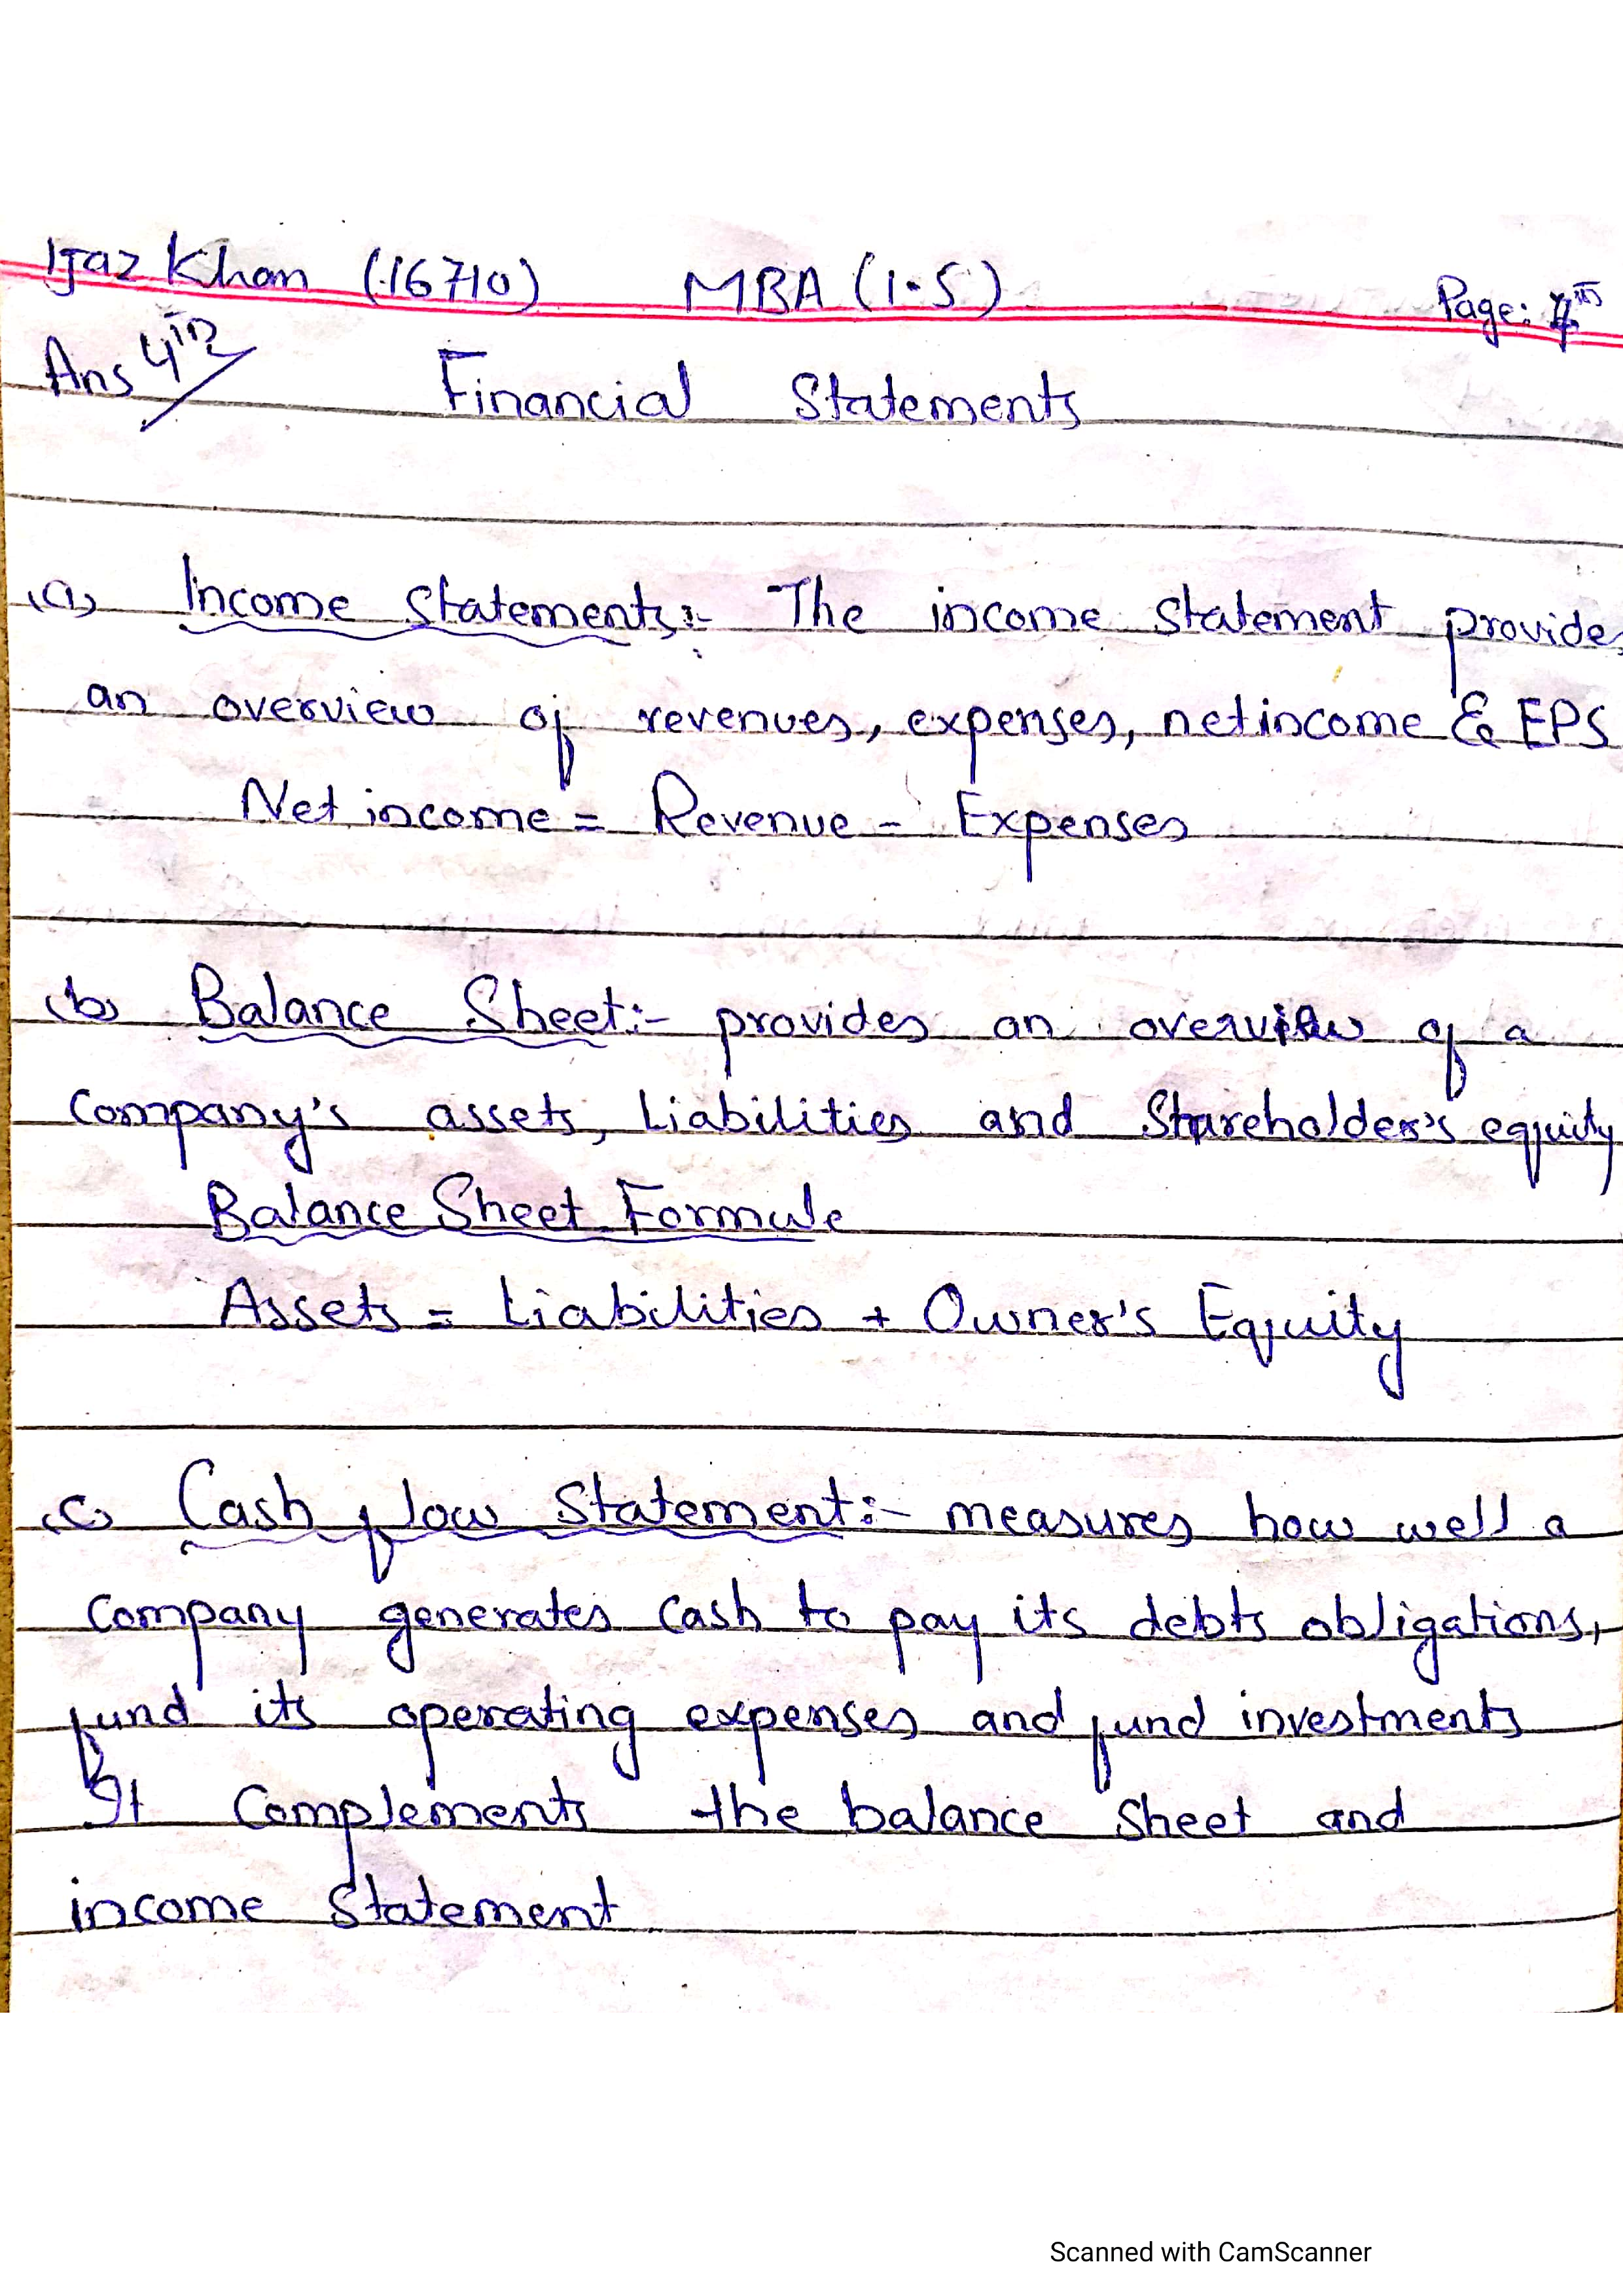 Ijaz Khan (16710) MBA (1.5) Page:
Ans 4th
Financial Statements
(a) Income Statements:- The income statement provides
an overview of revenues, expenses, net income & EPS
Net income = Revenue - Expenses
(b) Balance Sheet:- provides an overview of a
Company's assets, Liabilities and Shareholder's equity
Balance Sheet Formula
Assets = Liabilities + Owner's Equity
(c) Cash flow Statement:- measures how well a
Company generates cash to pay its debts obligations,
fund its operating expenses and fund investments
It Complements the balance sheet and
income Statement
Scanned with CamScanner